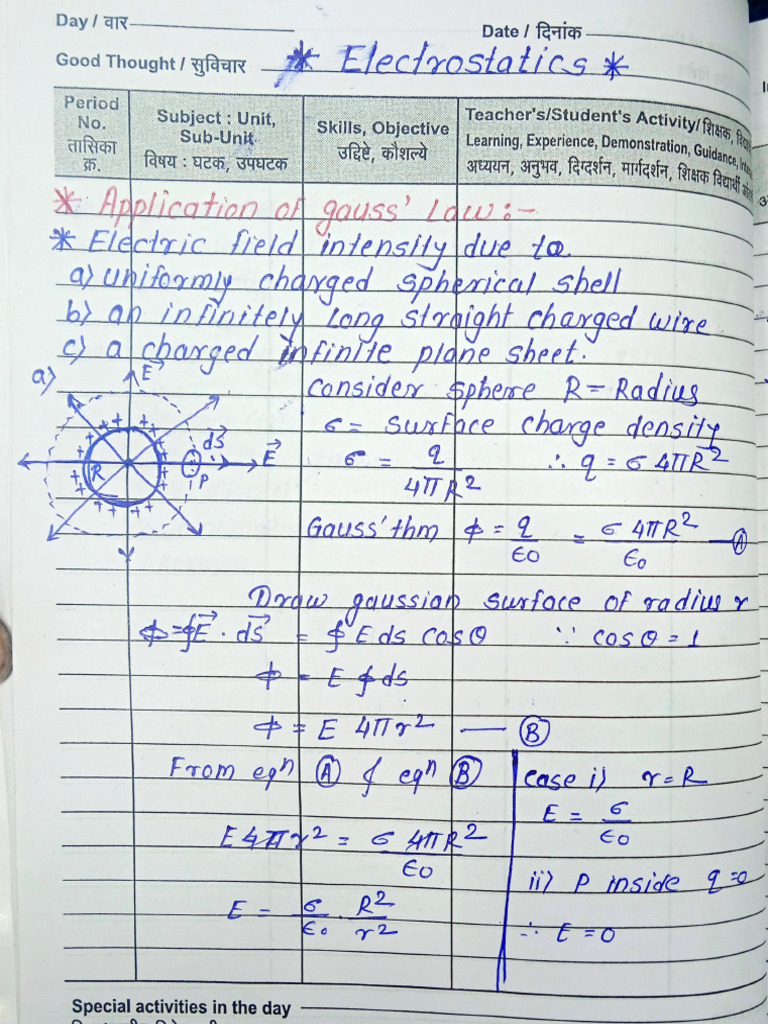 Day / वार
Date / दिनांक
Good Thought / सुविचार * Electrostatics *
Period No. तासिका क्र.
Subject : Unit, Sub-Unit विषय : घटक, उपघटक
Skills, Objective उद्दिष्टे, कौशल्ये
Teacher's/Student's Activity/ शिक्षक,
Learning, Experience, Demonstration, Guidance,
अध्ययन, अनुभव, दिग्दर्शन, मार्गदर्शन, शिक्षक विद्यार्थी
* Application of gauss' Law:-
* Electric field intensity due to
a) uniformly charged spherical shell
b) an infinitely long straight charged wire
c) a charged infinite plane sheet.
a)
E⃗
dS⃗
E⃗
R
P
consider sphere R = Radius
σ = surface charge density
σ = q / 4πR² ∴ q = σ 4πR²
Gauss' thm ϕ = q/ϵ0 = σ 4πR²/ϵ0 — Ⓐ
Draw gaussian surface of radius r
ϕ = ∮E⃗ . ds⃗ = ∮ E ds cosθ ∵ cosθ = 1
ϕ = E ∮ds
ϕ = E 4πr² — Ⓑ
From eqⁿ Ⓐ & eqⁿ Ⓑ
E 4πr² = σ 4πR²/ϵ0
E = σ/ϵ0 . R²/r²
case i) r = R
E = σ/ϵ0
ii) P inside q = 0
∴ E = 0
Special activities in the day